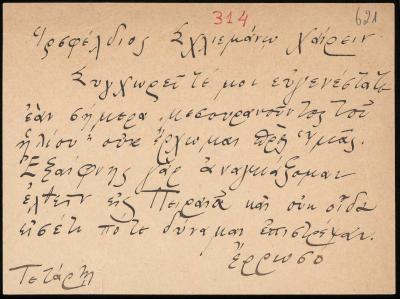 314 621
Ἑρσφέλδιος Σχλιεμάνῳ Χαίρειν
Συγχωρεῖτέ μοι εὐγενέστατε
ἐὰν σήμερα „μεσουρανοῦντος τοῦ
ἡλίου" οὐκ ἔρχωμαι πρὸς Ὑμᾶς.
Ἐξαίφνης γὰρ ἀναγκάζομαι
ἐλθεῖν εἰς Πειραιᾶ καὶ οὐκ οἶδα
εἰσέτι πότε δύναμαι ἐπιστρέψαι.
Ἔρρωσο
Τετάρτῃ